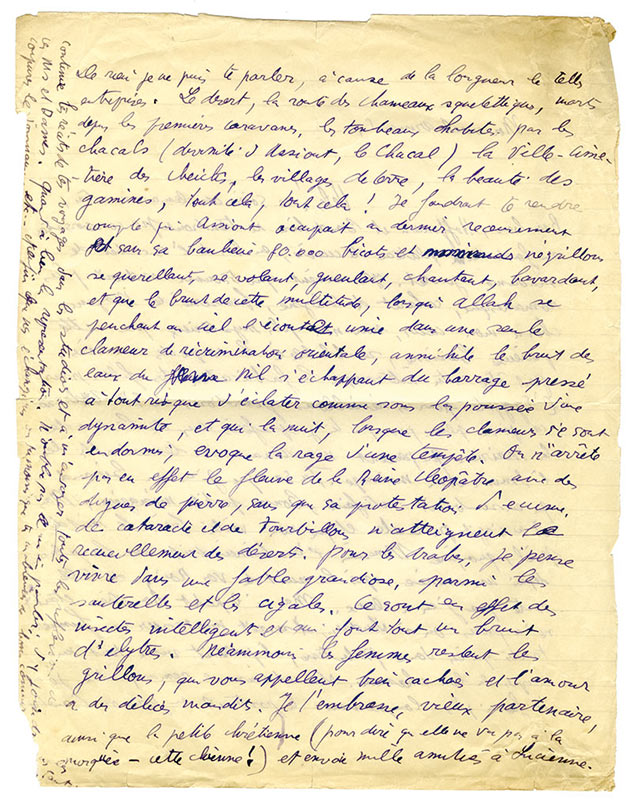 De moi je ne puis te parler, à cause de la longueur de telles
entreprises. Le désert, la route des chameaux squelettique, morts
depuis les premières caravanes, les tombeaux habités par les
chacals (divinité d'Assiout, le Chacal) la Ville-Cime-
tière des cheicks, les villages de terre, la beauté des
gamines, tout cela, tout cela ! Je faudrait te rendre
compte qu'Assiout occupait au dernier recensement
et sans sa banlieue 80.000 bicots et négrillons
se querellant, se volant, gueulant, chantant, bavardant,
et que le bruit de cette multitude, lorsqu'Allah se
penchant au ciel l'écoute unie, dans une seule
clameur de récrimination orientale, annihile le bruit des
eaux du Nil s'échappant du barrage pressé
à tout risque d'éclater comme sous la poussée d'une
dynamite, et qui la nuit, lorsque les clameurs se sont
endormies évoque la rage d'une tempête. On n'arrête
pas en effet le fleuve de la Reine Cléopâtre avec des
digues de pierre, sans que sa protestation d'écume,
de cataracte et de tourbillons n'atteignent le
recueillement des déserts. Pour les arabes, je pense
vivre dans une fable grandiose, parmi les
sauterelles et les cigales. Ce sont en effet des
insectes intelligents et qui font tout un bruit
d'elytres. Néammoins les femmes restent les
grillons, qui vous appellent bien cachés et l'amour
a des délices maudit. Je t'embrasse, vieux partenaire,
ainsi que la petite chrétienne (pour dire qu'elle ne va pas à la
mosquée – cette chienne !) et envoie mille amitiés à Lucienne.
Continue tes récits de tes voyages dans les studios et à m'envoyer toutes les